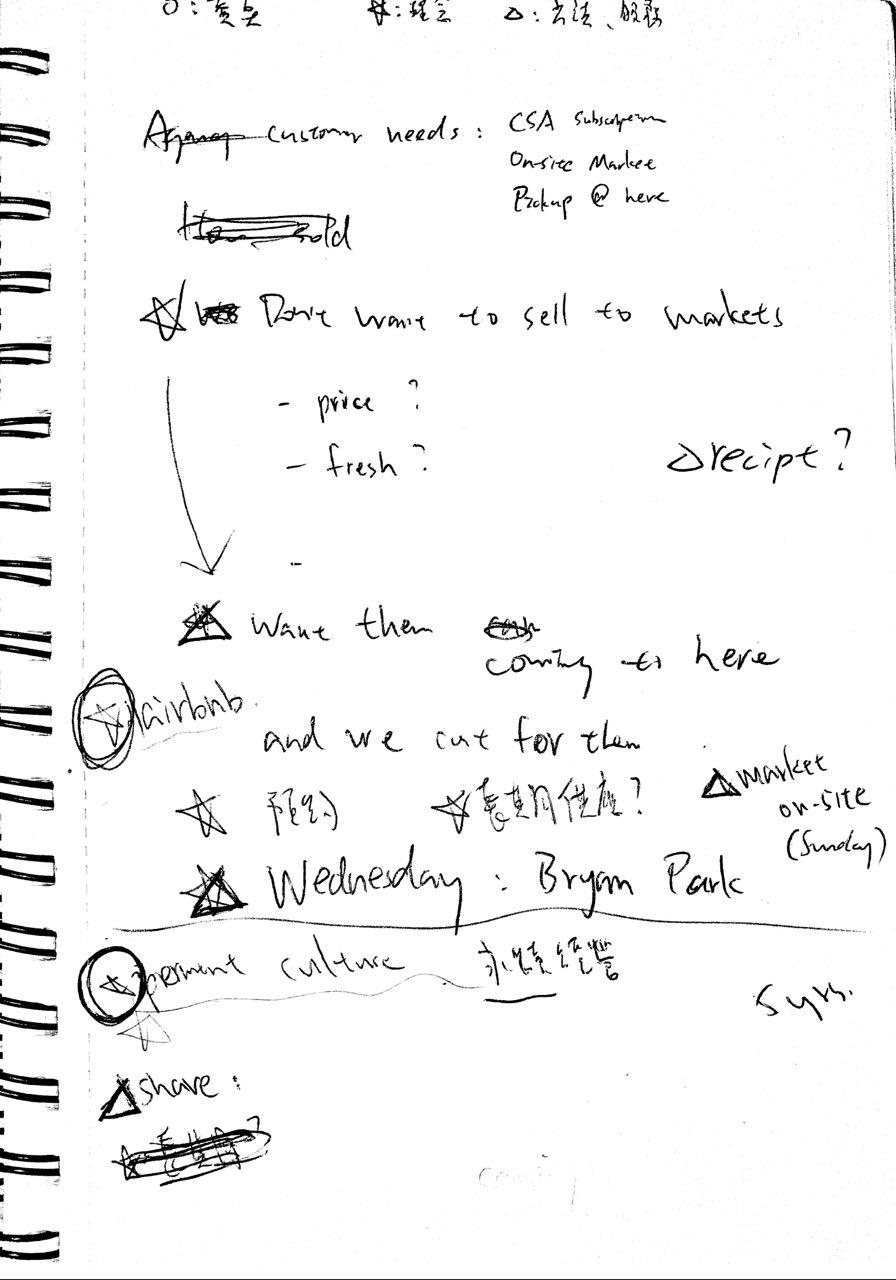 ☆: 理念
customer needs: CSA Subscription
On-site Market
Pickup @ here
sold
☆ Don't want to sell to markets
- price ?
- fresh ?
△ recipt ?
-
△ want them
coming to here
☆ airbnb.
and we cut for them
☆ 預約 ☆ 長期供應?
△ market
on-site
(Sunday)
△ Wednesday : Bryam Park
☆ perment culture 永續經營
5 yrs.
☆
△ share :